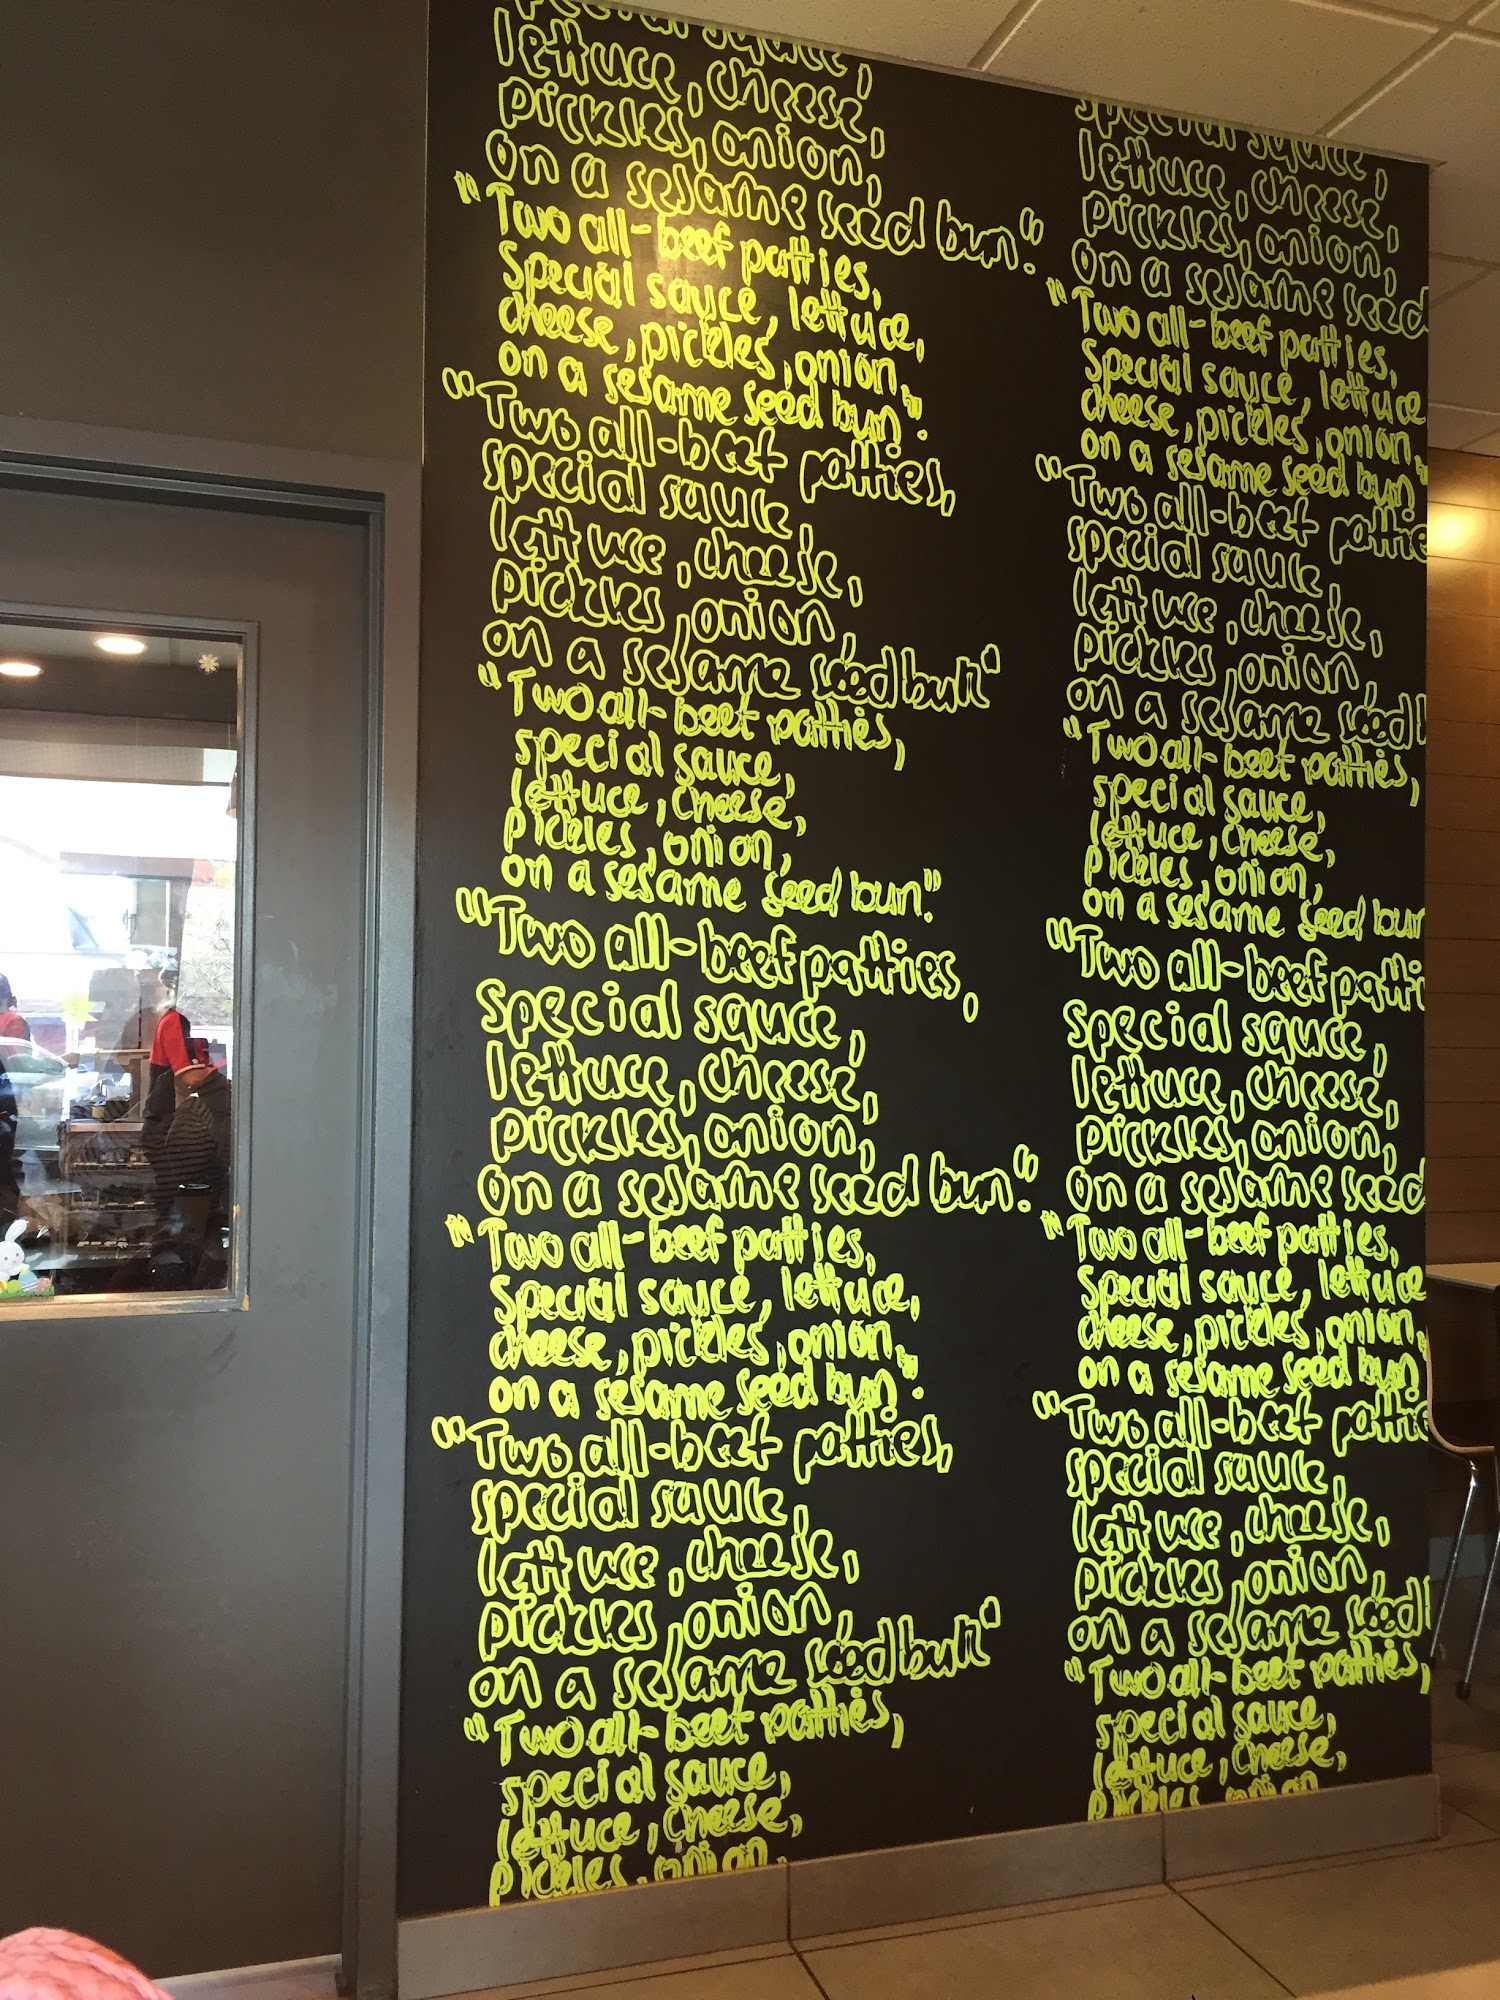 special sauce,
lettuce, cheese,
pickles, onion,
on a sesame seed bun."
"Two all-beef patties,
special sauce, lettuce,
cheese, pickles, onion,
on a sesame seed bun".
"Two all-beef patties,
special sauce,
lettuce, cheese,
pickles, onion,
on a sesame seed bun"
"Two all-beef patties,
special sauce,
lettuce, cheese,
pickles, onion,
on a sesame seed bun."
"Two all-beef patties,
special sauce,
lettuce, cheese,
pickles, onion,
on a sesame seed bun."
"Two all-beef patties,
special sauce, lettuce,
cheese, pickles, onion,
on a sesame seed bun".
"Two all-beef patties,
special sauce,
lettuce, cheese,
pickles, onion,
on a sesame seed bun"
"Two all-beef patties,
special sauce,
lettuce, cheese,
pickles, onion,
special sauce,
lettuce, cheese,
pickles, onion,
on a sesame seed
"Two all-beef patties,
special sauce, lettuce
cheese, pickles, onion,
on a sesame seed bun"
"Two all-beef pattie
special sauce,
lettuce, cheese,
pickles, onion,
on a sesame seed b
"Two all-beef patties,
special sauce,
lettuce, cheese,
pickles, onion,
on a sesame seed bun
"Two all-beef patti
special sauce,
lettuce, cheese,
pickles, onion,
on a sesame seed
"Two all-beef patties,
special sauce, lettuce
cheese, pickles, onion,
on a sesame seed bun
"Two all-beef pattie
special sauce,
lettuce, cheese,
pickles, onion,
on a sesame seed b
"Two all-beef patties,
special sauce,
lettuce, cheese,
pickles, onion